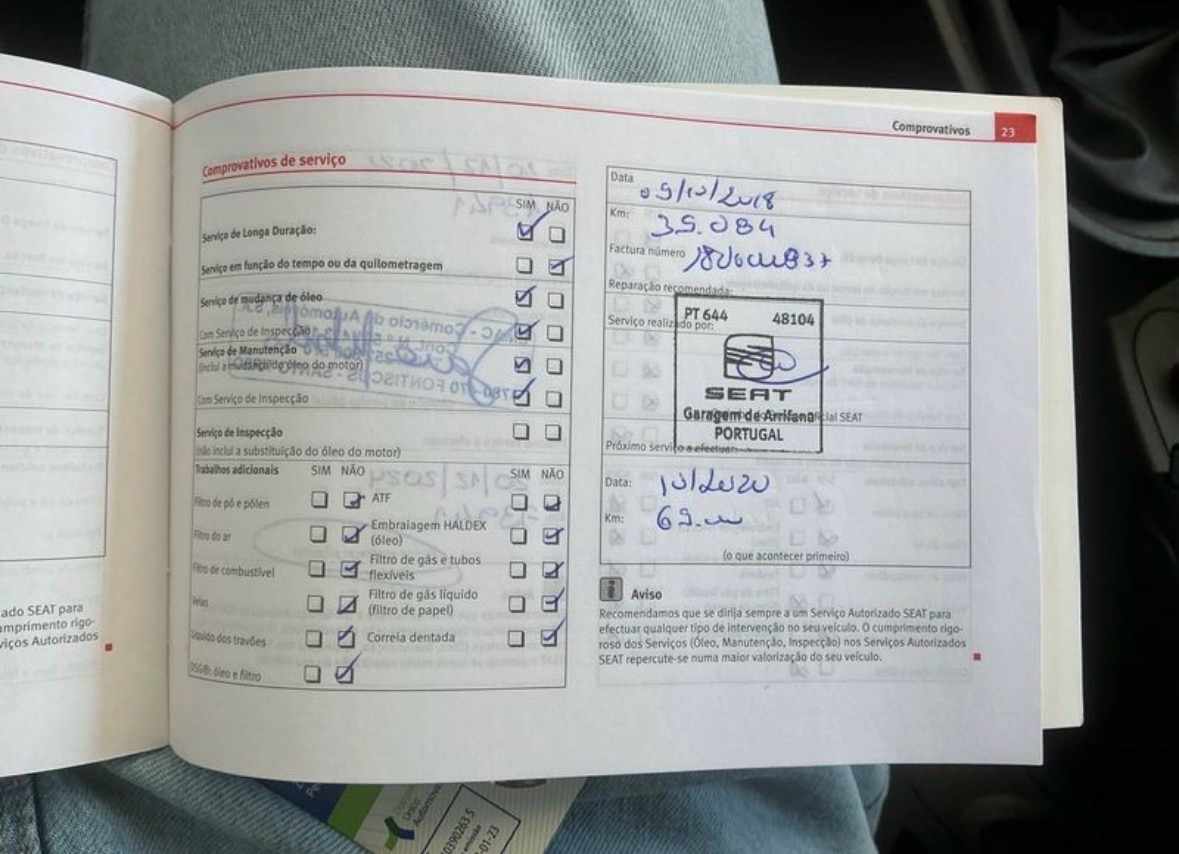 Comprovativos 23
Comprovativos de serviço
SIM NÃO
Serviço de Longa Duração:
Serviço em função do tempo ou da quilometragem
Serviço de mudança de óleo
Com Serviço de Inspecção
Serviço de Manutenção
(inclui a mudança do óleo do motor)
Com Serviço de Inspecção
Serviço de Inspecção
(não inclui a substituição do óleo do motor)
Trabalhos adicionais SIM NÃO SIM NÃO
Filtro de pó e pólen ATF
Filtro do ar Embraiagem HALDEX
(óleo)
Filtro de combustível Filtro de gás e tubos
flexíveis
Velas Filtro de gás líquido
(filtro de papel)
Líquido dos travões Correia dentada
DSG®: óleo e filtro
Data
09/10/2018
Km: 35.084
Factura número
Reparação recomendada:
Serviço realizado por:
PT 644 48104
SEAT
Garagem de Arrifana
cial SEAT
PORTUGAL
Próximo serviço a efectuar:
Data: 10/2020
Km:
(o que acontecer primeiro)
Aviso
Recomendamos que se dirija sempre a um Serviço Autorizado SEAT para
efectuar qualquer tipo de intervenção no seu veículo. O cumprimento rigo-
roso dos Serviços (Óleo, Manutenção, Inspecção) nos Serviços Autorizados
SEAT repercute-se numa maior valorização do seu veículo.
ado SEAT para
mprimento rigo-
viços Autorizados
10390263.5
-01-23